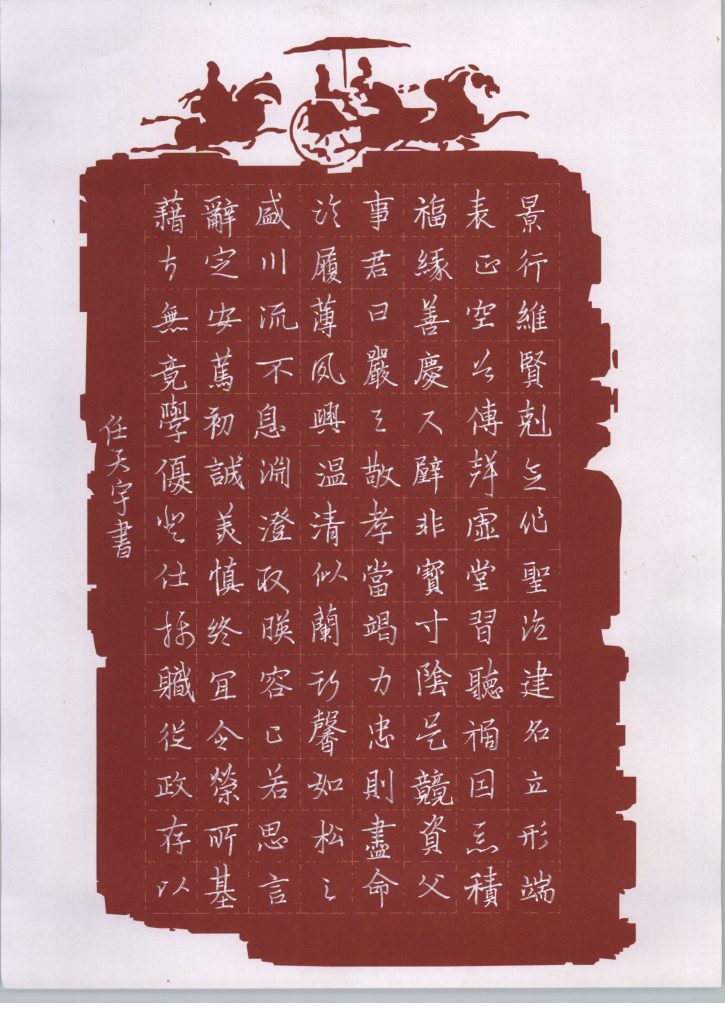 景行維賢剋念作聖德建名立形端
表正空谷傳聲虛堂習聽禍因惡積
福緣善慶尺璧非寶寸陰是競資父
事君曰嚴與敬孝當竭力忠則盡命
深履薄夙興温清似蘭斯馨如松之
盛川流不息淵澄取暎容止若思言
辭定安篤初誠美慎終宜令榮所基
藉甚無竟學優登仕攝職從政存以
任天宇書